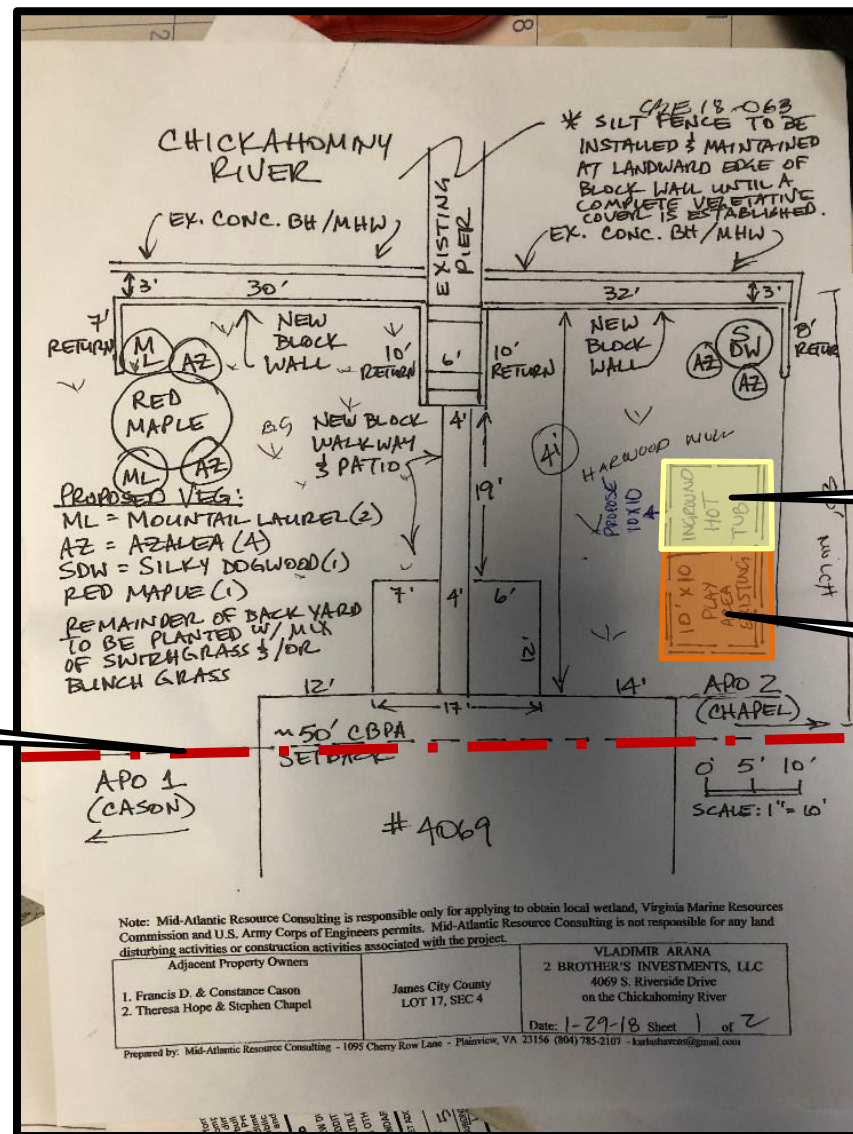 8
CBE 18-063
CHICKAHOMINY
RIVER
* SILT FENCE TO BE
INSTALLED & MAINTAINED
AT LANDWARD EDGE OF
BLOCK WALL UNTIL A
COMPLETE VEGETATIVE
COVER IS ESTABLISHED.
EXISTING
PIER
EX. CONC. BH/MHW
EX. CONC. BH/MHW
3'
30'
32'
3'
7'
RETURN
NEW
BLOCK
WALL
10'
RETURN
6'
10'
RETURN
NEW
BLOCK
WALL
8'
RETURN
ML
AZ
SDW
AZ
AZ
RED
MAPLE
ML
AZ
NEW BLOCK
WALKWAY
& PATIO
4'
19'
41'
HARWOOD
PROPOSE
10X10
INGROUND
HOT
TUB
10' X 10
PLAY
AREA
EXISTING
PROPOSED VEG:
ML = MOUNTAIL LAUREL (2)
AZ = AZALEA (4)
SDW = SILKY DOGWOOD (1)
RED MAPLE (1)
REMAINDER OF BACK YARD
TO BE PLANTED W/ MIX
OF SWITHGRASS &/OR
BUNCH GRASS
7'
4'
6'
12'
12'
17'
14'
APO 2
(CHAPEL)
~50' CBPA
SETBACK
APO 1
(CASON)
0' 5' 10'
SCALE: 1"= 10'
#4069
Note: Mid-Atlantic Resource Consulting is responsible only for applying to obtain local wetland, Virginia Marine Resources
Commission and U.S. Army Corps of Engineers permits. Mid-Atlantic Resource Consulting is not responsible for any land
disturbing activities or construction activities associated with the project.
Adjacent Property Owners
1. Francis D. & Constance Cason
2. Theresa Hope & Stephen Chapel
James City County
LOT 17, SEC 4
VLADIMIR ARANA
2 BROTHER'S INVESTMENTS, LLC
4069 S. Riverside Drive
on the Chickahominy River
Date: 1-29-18 Sheet 1 of 2
Prepared by: Mid-Atlantic Resource Consulting - 1095 Cherry Row Lane - Plainview, VA 23156 (804) 785-2107 - karlashavens@gmail.com